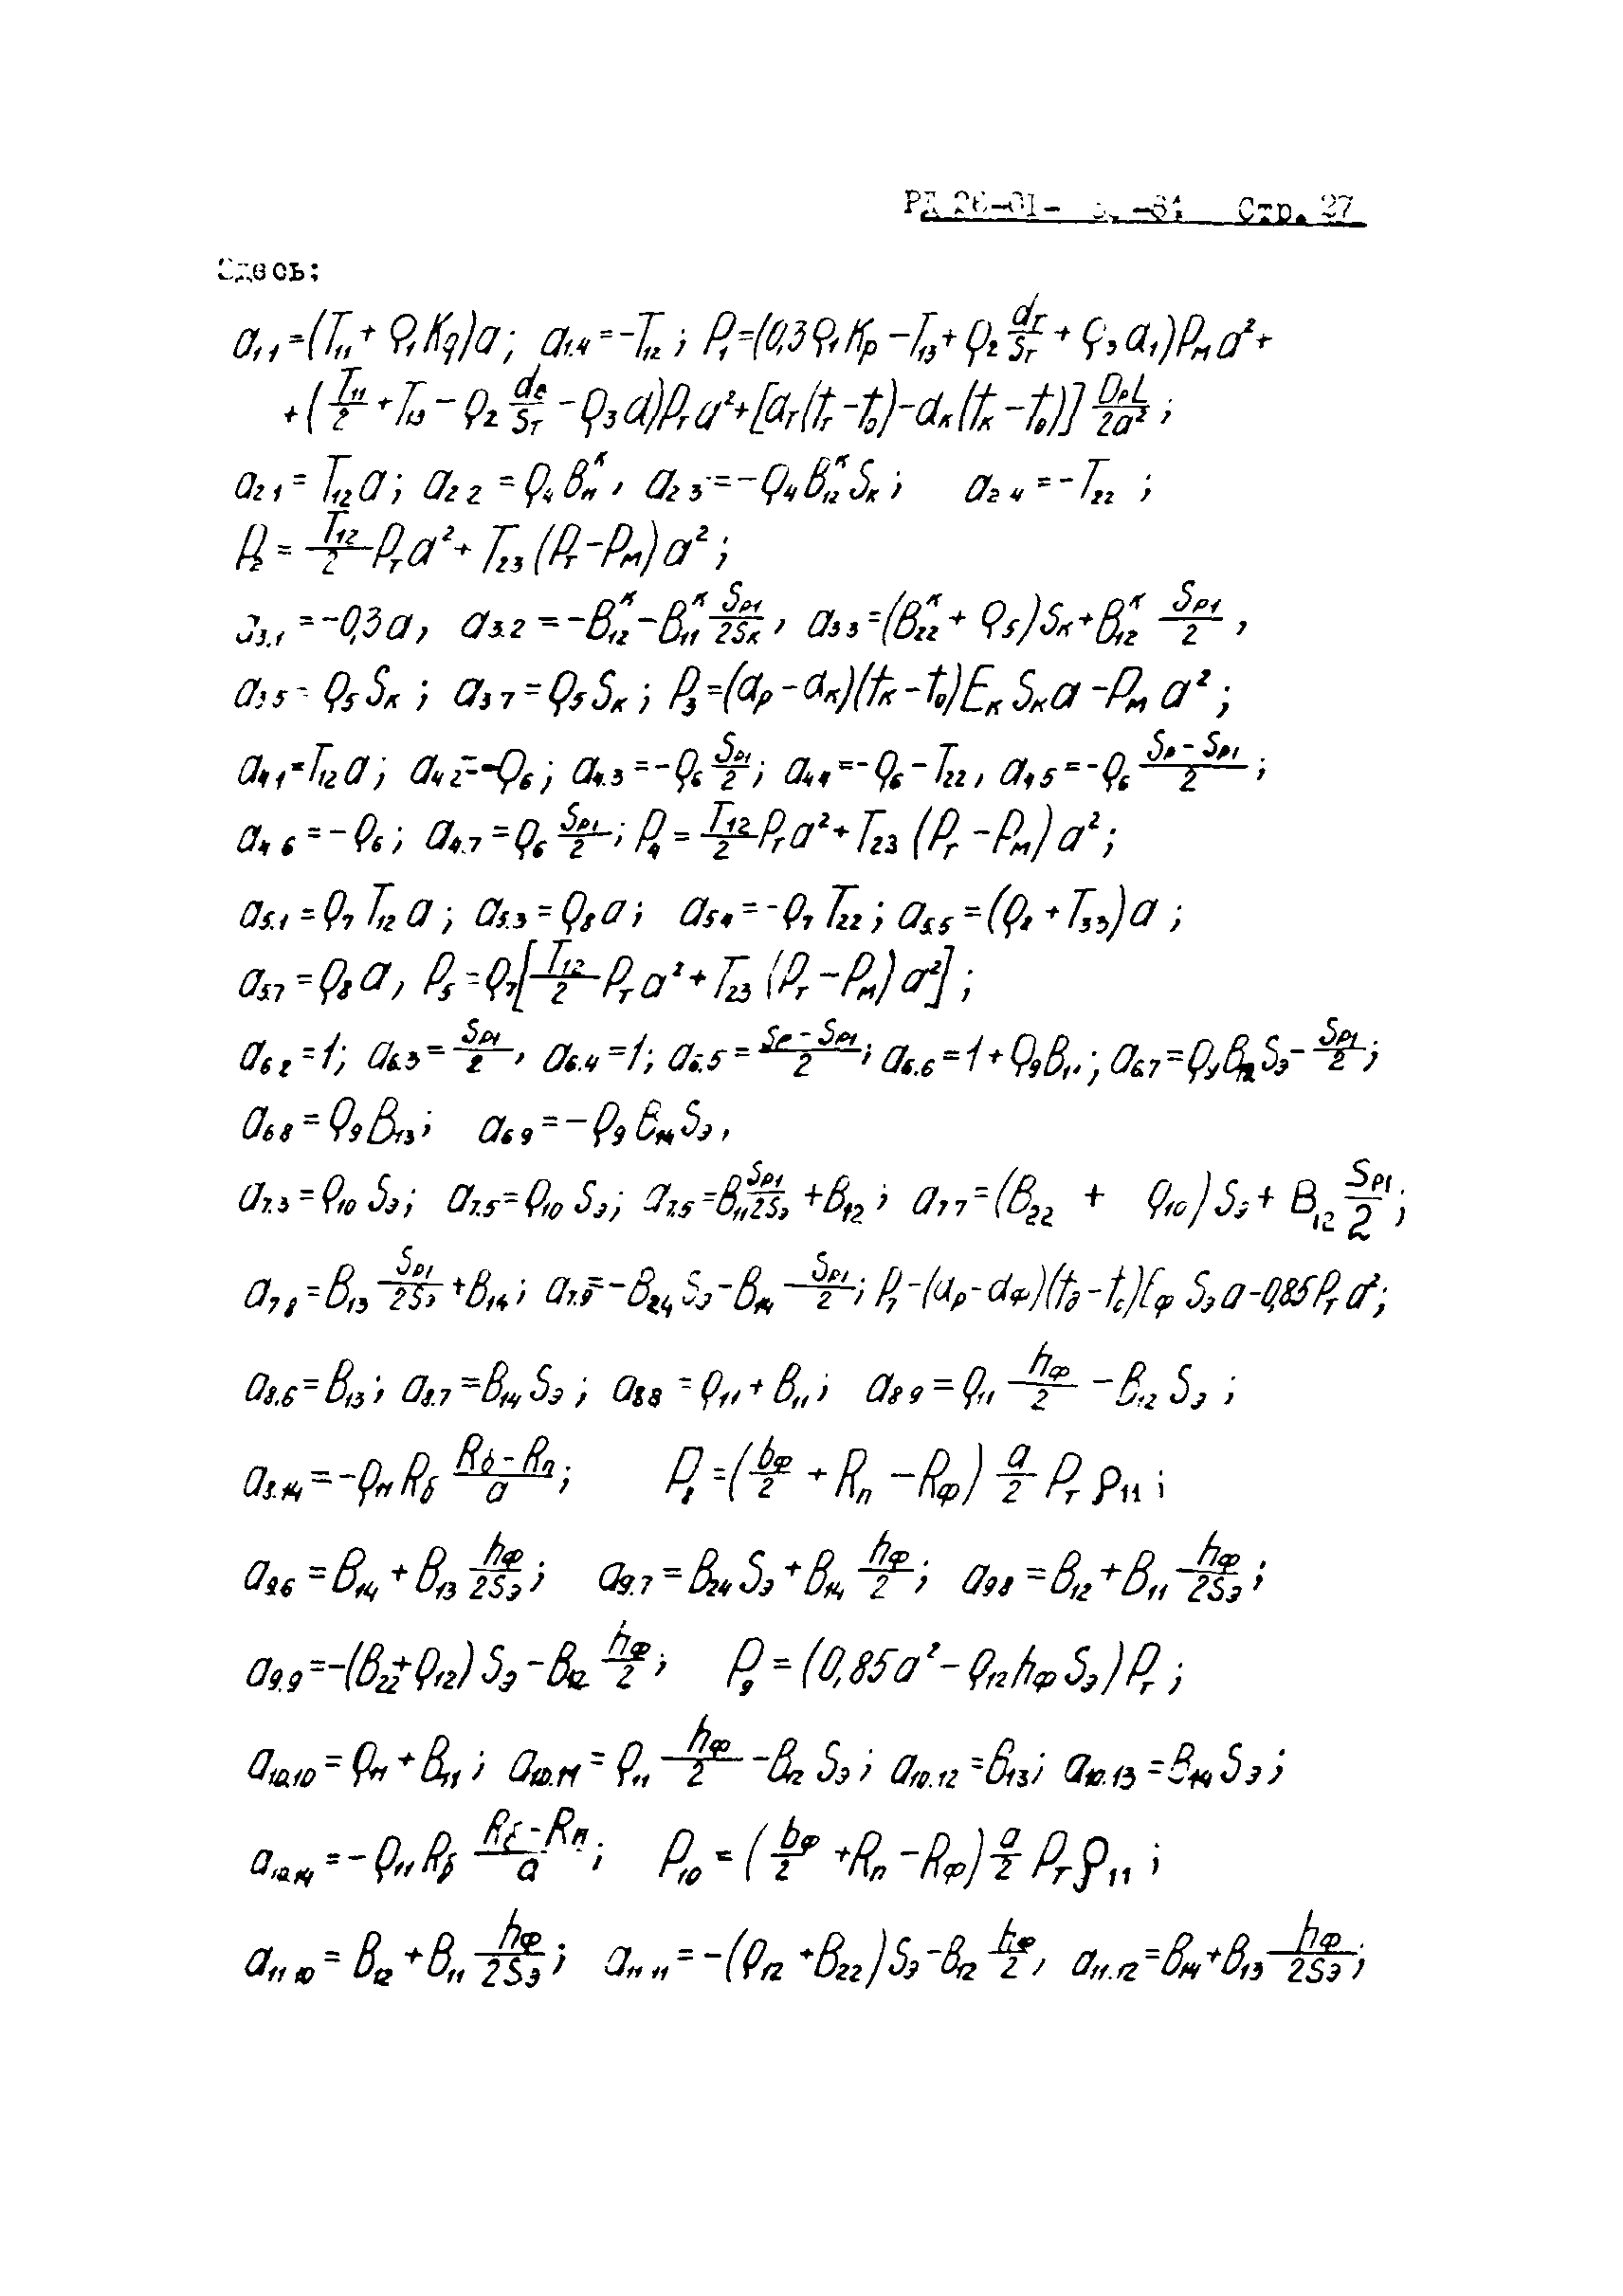 Стр. 27
Здесь:
a₁.₁=(T₁₁+Q₁K_q)a; a₁.₄=-T₁₂; P₁=(0,3Q₁K_p-T₁₃+Q₂ d_т/S_т+Q₃a₁)P_м a²+
+(T₁₁/2+T₁₃-Q₂ d_в/S_т-Q₃a)P_т a²+[α_т(t_т-t₀)-α_к(t_к-t₀)] D_pL/2a²;
a₂.₁=T₁₂a; a₂.₂=Q₄B₁₁ᴷ, a₂.₃=-Q₄B₁₂ᴷS_к; a₂.₄=-T₂₂;
P₂=T₁₂/2 P_т a²+T₂₃(P_т-P_м)a²;
a₃.₁=-0,3a, a₃.₂=-B₁₂ᴷ-B₁₁ᴷ S_p1/2S_к, a₃.₃=(B₂₂ᴷ+Q₅)S_к+B₁₂ᴷ S_p1/2,
a₃.₅=Q₅S_к; a₃.₇=Q₅S_к; P₃=(α_p-α_к)(t_к-t₀)E_к S_к a-P_м a²;
a₄.₁=T₁₂a; a₄.₂=-Q₆; a₄.₃=-Q₆ S_p1/2; a₄.₄=-Q₆-T₂₂, a₄.₅=-Q₆ (S_p-S_p1)/2;
a₄.₆=-Q₆; a₄.₇=Q₆ S_p1/2; P₄=T₁₂/2 P_т a²+T₂₃(P_т-P_м)a²;
a₅.₁=Q₇T₁₂a; a₅.₃=Q₈a; a₅.₄=-Q₇T₂₂; a₅.₅=(Q₈+T₃₃)a;
a₅.₇=Q₈a, P₅=Q₇[T₁₂/2 P_т a²+T₂₃(P_т-P_м)a²];
a₆.₂=1; a₆.₃=S_p1/2, a₆.₄=1; a₆.₅=(S_p-S_p1)/2; a₆.₆=1+Q₉B₁₁; a₆.₇=Q₉B₁₂S_э-S_p1/2;
a₆.₈=Q₉B₁₃; a₆.₉=-Q₉B₁₄S_э,
a₇.₃=Q₁₀S_э; a₇.₅=Q₁₀S_э; a₇.₅=B₁₁ S_p1/2S_э+B₁₂; a₇.₇=(B₂₂+Q₁₀)S_э+B₁₂ S_p1/2;
a₇.₈=B₁₃ S_p1/2S_э+B₁₄; a₇.₉=-B₂₄S_э-B₁₄ S_p1/2; P₇-(α_p-α_ф)(t_д-t_с)E_ф S_э a-0,85P_т a²;
a₈.₆=B₁₃; a₈.₇=B₁₄S_э; a₈.₈=Q₁₁+B₁₁; a₈.₉=Q₁₁ h_ф/2-B₁₂S_э;
a₈.₁₄=-Q₁₁R_б (R_б-R_п)/a; P₈=(b_ф/2+R_п-R_ф) a/2 P_т Q₁₁;
a₉.₆=B₁₄+B₁₃ h_ф/2S_э; a₉.₇=B₂₄S_э+B₁₄ h_ф/2; a₉.₈=B₁₂+B₁₁ h_ф/2S_э;
a₉.₉=-(B₂₂+Q₁₂)S_э-B₁₂ h_ф/2; P₉=(0,85a²-Q₁₂h_фS_э)P_т;
a₁₀.₁₀=Q₁₁+B₁₁; a₁₀.₁₁=Q₁₁ h_ф/2-B₁₂S_э; a₁₀.₁₂=B₁₃; a₁₀.₁₃=B₁₄S_э;
a₁₀.₁₄=-Q₁₁R_б (R_б-R_п)/a; P₁₀=(b_ф/2+R_п-R_ф) a/2 P_т Q₁₁;
a₁₁.₁₀=B₁₂+B₁₁ h_ф/2S_э; a₁₁.₁₁=-(Q₁₂+B₂₂)S_э-B₁₂ h_ф/2, a₁₁.₁₂=B₁₄+B₁₃ h_ф/2S_э;